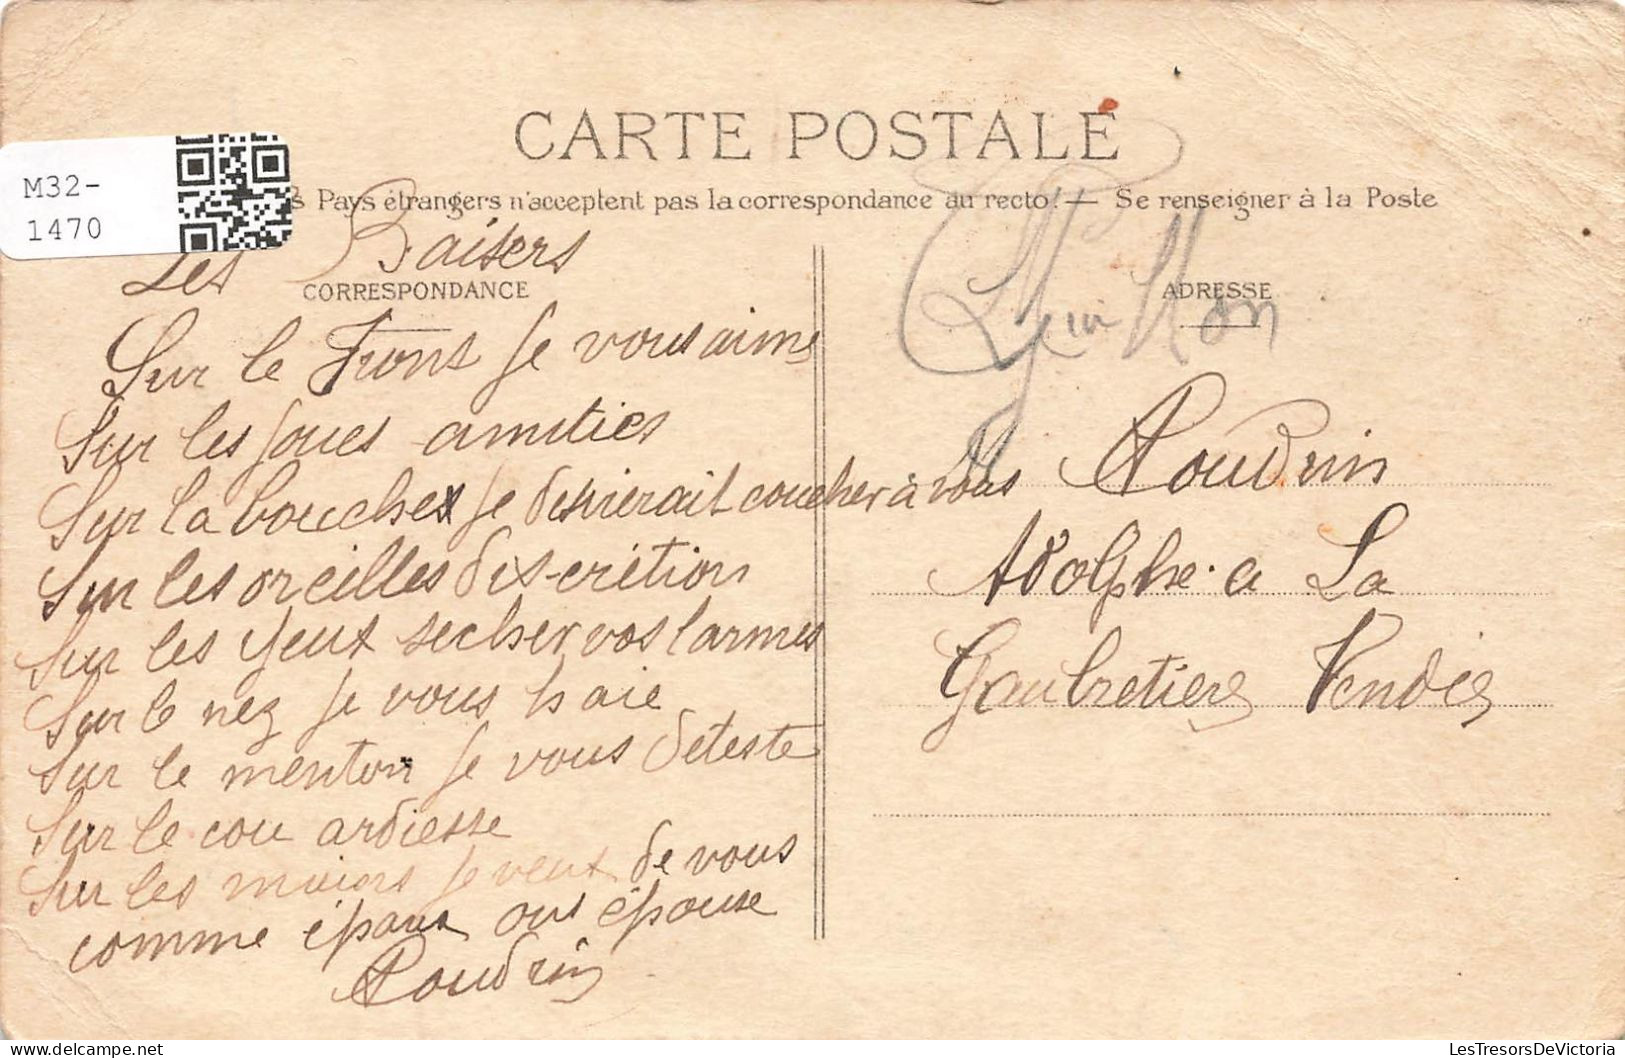 CARTE POSTALE
M32-
1470
s Pays étrangers n'acceptent pas la correspondance au recto! — Se renseigner à la Poste
Les Baisers
CORRESPONDANCE
Sur le Front Je vous aime
Sur les joues amitiés
Sur la bouche Je desirerait coucher à vous
Sur les oreilles dis-crétion
Sur les yeux secher vos larmes
Sur le nez Je vous haie
Sur le menton Je vous deteste
Sur le cou ardiesse
Sur les mains Je veux de vous
comme épaux ous épouse
Poudrin
ADRESSE
Poudrin
Adolphe. a La
Gaubretiere Vendée
LesTresorsDeVictoria